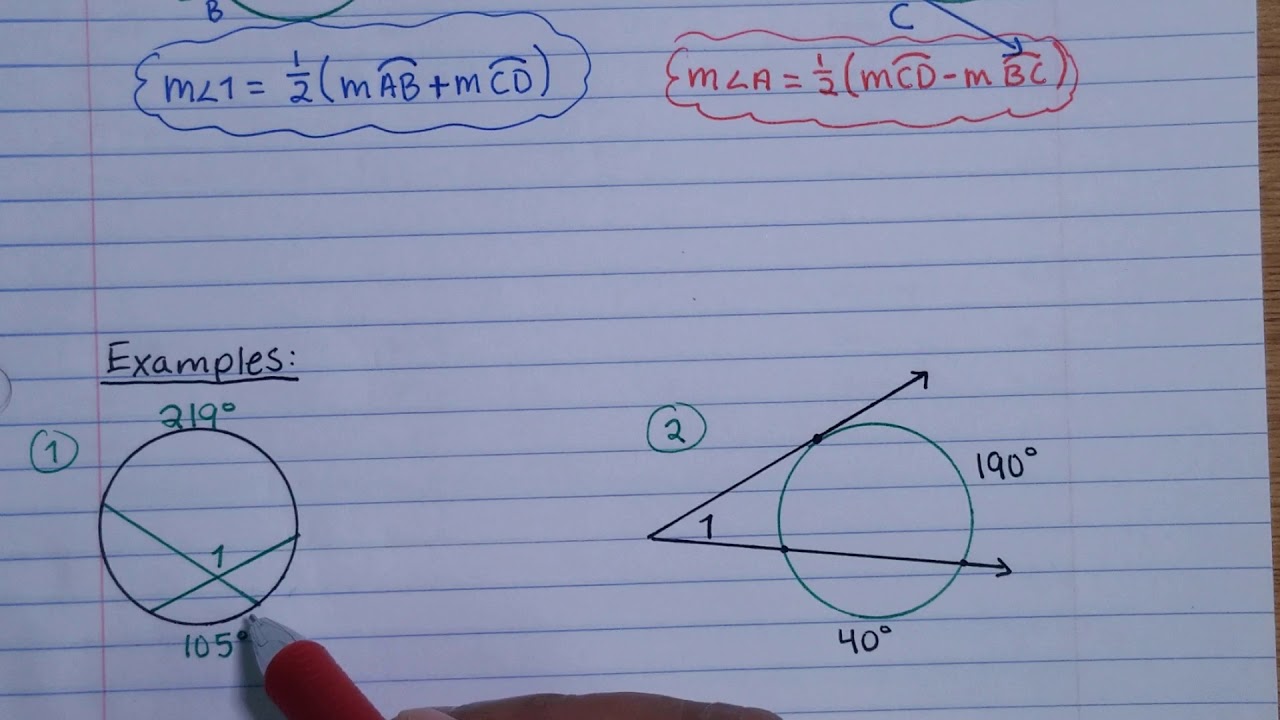 B
C
m∠1 = 1/2 (mAB͡ + mCD͡)
m∠A = 1/2 (mCD͡ - mBC͡)
Examples:
1
219°
1
105°
2
190°
1
40°